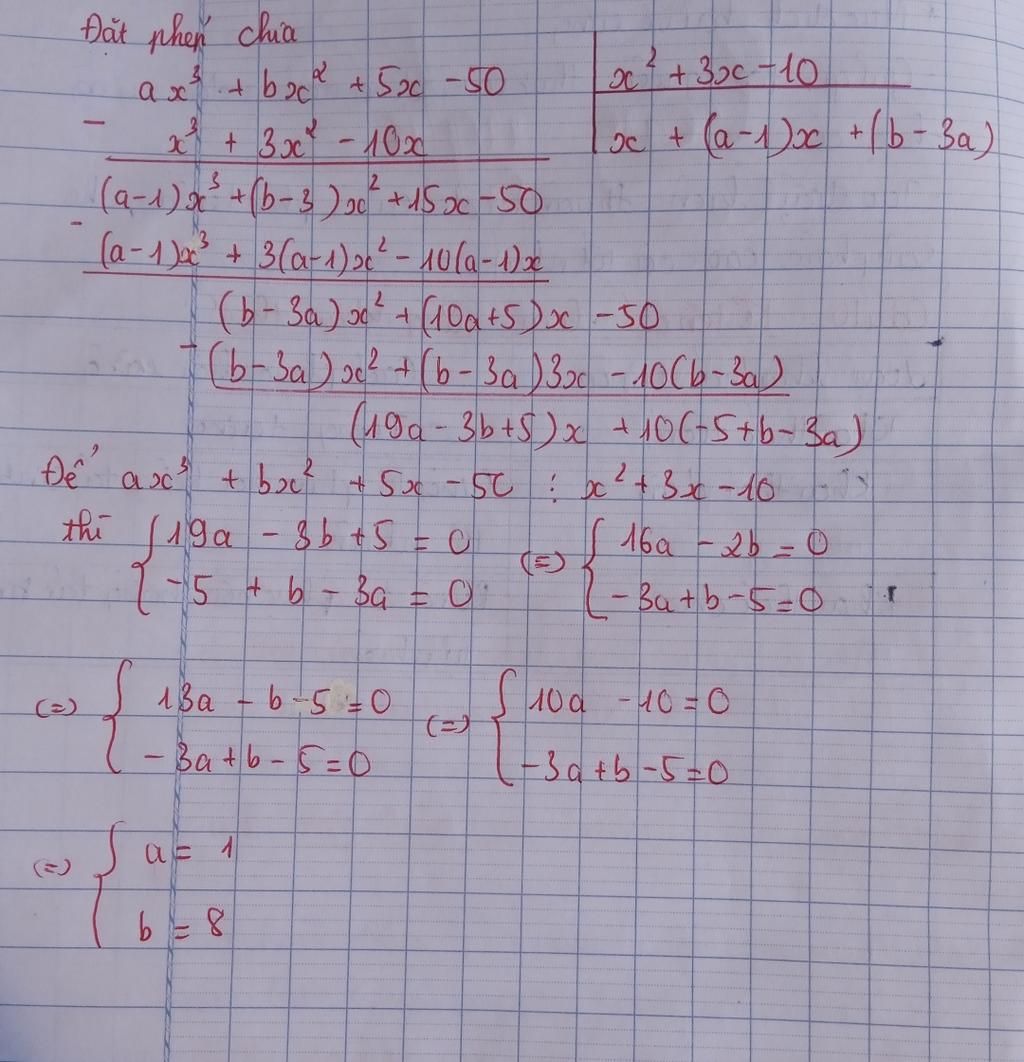 Đặt phép chia
ax³ + bx² + 5x - 50 | x² + 3x - 10
- x³ + 3x² - 10x | x + (a-1)x + (b - 3a)
(a-1)x³ + (b-3)x² + 15x - 50
- (a-1)x³ + 3(a-1)x² - 10(a-1)x
(b - 3a)x² + (10a+5)x - 50
- (b-3a)x² + (b - 3a)3x - 10(b-3a)
(19a - 3b+5)x + 10(-5+b-3a)
Để ax³ + bx² + 5x - 50 ⋮ x² + 3x - 10
thì { 19a - 3b + 5 = 0 (=) { 16a - 2b = 0
-5 + b - 3a = 0 - 3a + b - 5 = 0
(=) { 13a - b - 5 = 0 (=) { 10a - 10 = 0
- 3a + b - 5 = 0 - 3a + b - 5 = 0
(=) { a = 1
b = 8